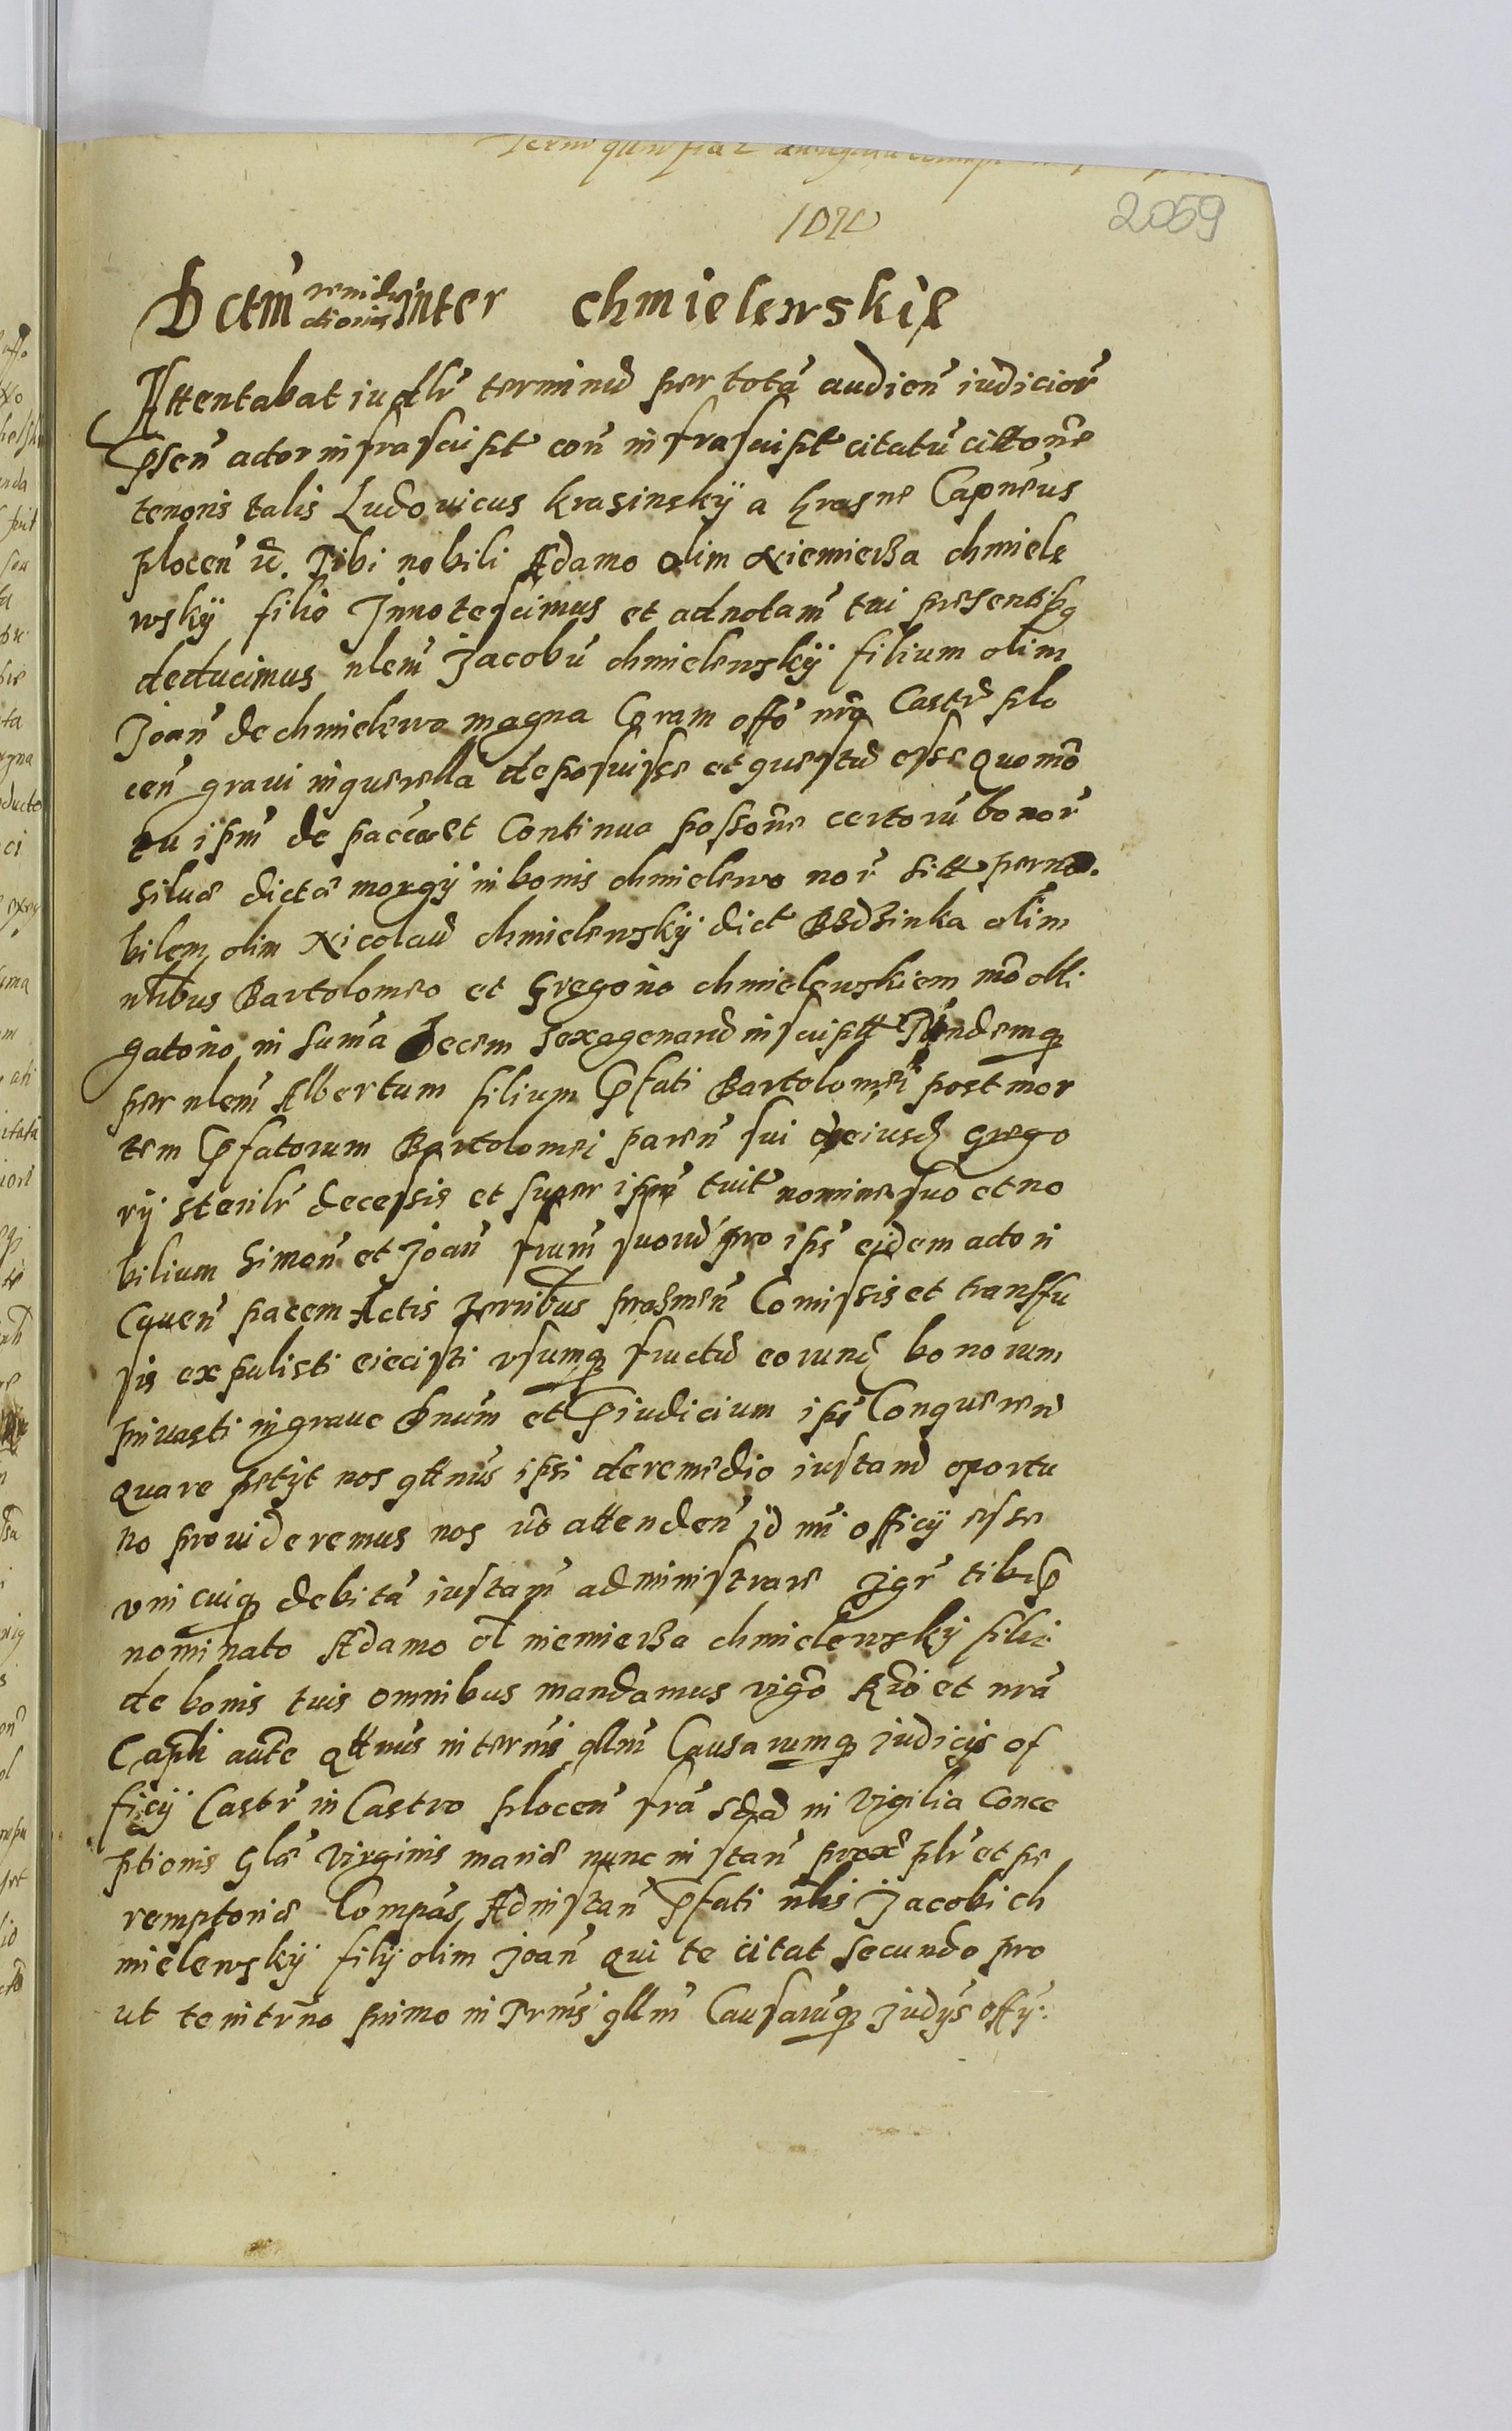 2059
Dctm remissionis inter chmielewskie
Attentabat iudlr terminũ per totã audien̄ iudicior̄
p̄sen̄ actor infrascript̄ con̄ infrascript̄ citatũ citt̄one
tenoris talis Ludovicus Krasinskÿ a Krasne Capneūs
plocen̄ Tibi nobili Adamo olim Niemierza chmiele
wskÿ filio Innotescimus et ad notam̄ tui presentibq
deducimus nlem̄ Jacobũ chmielewskÿ filium olim
Joan̄ de chmielewo magna Coram offō nrō Castr̄ plo
cen̄ gravi in querella deposuisse et questũ esse Quomō
tu ipm̄ de pacca et Continua posson̄e certorũ bonor̄
silvæ dictæ morgÿ in bonis chmielewo nor̄ sitt per no
bilem olim Nicolaũ chmielewskÿ dict olim
nlibus Bartolomeo et Gregorio chmielewskiem mō obli
gatorio in suma Decem sexagenarũ inscriptt Tandemq
per nlem̄ Albertum filium p̄fati Bartolomei post mor
tem p̄fatorum Bartolomei paren̄ sui ac eiusd grego
rÿ sterilr̄ decessis et super ipm̄ tuit nomine suo et no
bilium Simon̄ et Joan̄ frum̄ suorũ pro ips̄ eidem actori
Caven̄ pacem Actis Terribus prasnen̄ Comissis et transfu
sis expulisti eiecisti usumq fructũ eorund bonorum
privasti in grave dnum̄ et p̄iudicium ips̄ Conqueren̄
Quare petÿt nos qttnus̄ ipsi de remedio iustantũ oportu
no provideremus nos vō attenden̄ id nri officÿ esse
unicuiq debitã iustam̄ administrare Jgr̄ tibi p̄
nominato Adamo ol niemierza chmielewskÿ filii
de bonis tuis omnibus mandamus vigō Rō et nrã
Capli aut̄te qttnus̄ in termis̄ qllm̄ Causarumq judicÿs of
ficÿ Castr̄ in Castro plocen̄ frã in Vigilia Conce
ptionis Glæ Virginis mariæ nunc instan̄ prox̄ plr̄ et pe
remptoriæ Compas̄ Ad instan̄ p̄fati nlis Jacobi ch
mielewskÿ filÿ olim Joan̄ qui te citat secundo pro
ut te in trn̄o primo in Trms̄ qllm̄ Causarũq Judÿs̄ offÿ